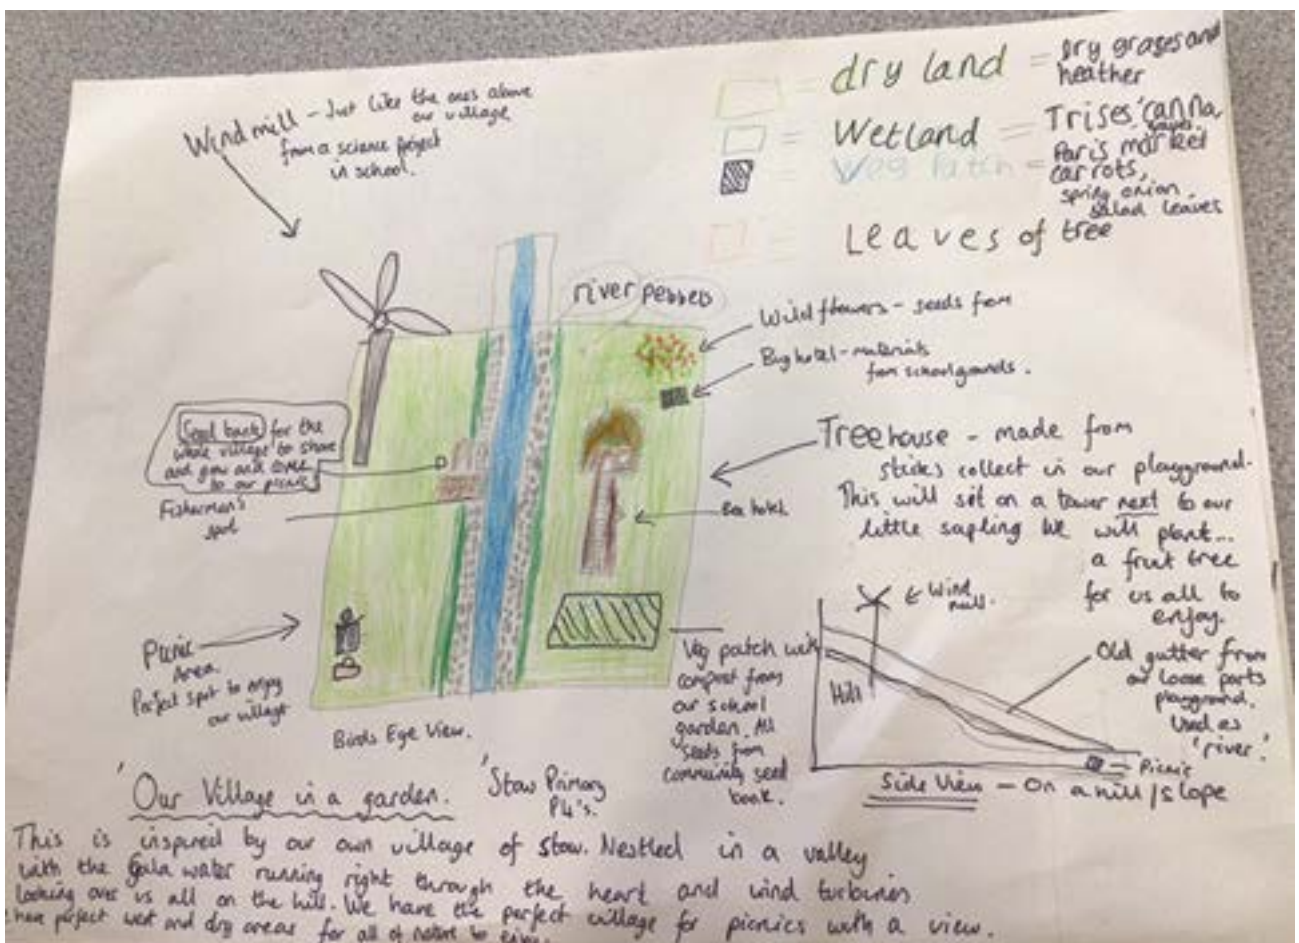 dry land = dry grasses and
heather
Wetland = Irises canna,
Veg Patch = Paris market
carrots,
spring onion,
salad leaves
Leaves of tree
Windmill - Just like the ones above
our village
from a science project
in school.
river pebbels
Wild flowers - seeds from
Bug hotel - materials
from school grounds.
Seed bank for the
whole village to share
and grow and come
to our picnic
Fisherman's
spot
Treehouse - made from
sticks collect in our playground.
This will sit on a tower next to our
little sapling we will plant...
a fruit tree
for us all to
enjoy.
Bee hotel
Picnic
Area.
Perfect spot to enjoy
our village
Birds Eye View.
Veg patch with
compost from
our school
garden. All
seeds from
community seed
bank.
Wind
mill.
Hill
Old gutter from
our loose parts
playground.
Used as
'river.'
Picnic
Side View - On a hill/slope
'Our Village in a garden.
'Stow Primary
P4's.
This is inspired by our own village of Stow. Nestled in a valley
with the Gala water running right through the heart and wind turbines
looking over us all on the hill. We have the perfect village for picnics with a view.
have perfect wet and dry areas for all of nature to enjoy.